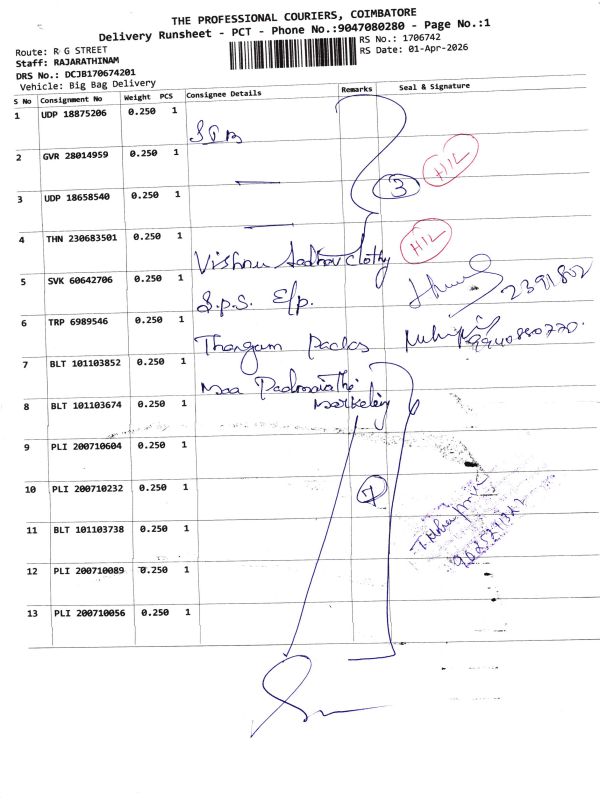 THE PROFESSIONAL COURIERS, COIMBATORE
Delivery Runsheet - PCT - Phone No.:9047080280 - Page No.:1
Route: R G STREET
RS No.: 1706742
Staff: RAJARATHINAM
RS Date: 01-Apr-2026
DRS No.: DCJB170674201
Vehicle: Big Bag Delivery
S No Consignment No Weight PCS Consignee Details Remarks Seal & Signature
1 UDP 18875206 0.250 1
2 GVR 28014959 0.250 1
HIL
3 UDP 18658540 0.250 1
3
4 THN 230683501 0.250 1 Vishnu
HIL
5 SVK 60642706 0.250 1 S.p.s.
6 TRP 6989546 0.250 1 Thangam Packs
7 BLT 101103852 0.250 1 Maa
8 BLT 101103674 0.250 1
9 PLI 200710604 0.250 1
10 PLI 200710232 0.250 1
7
11 BLT 101103738 0.250 1
12 PLI 200710089 0.250 1
13 PLI 200710056 0.250 1